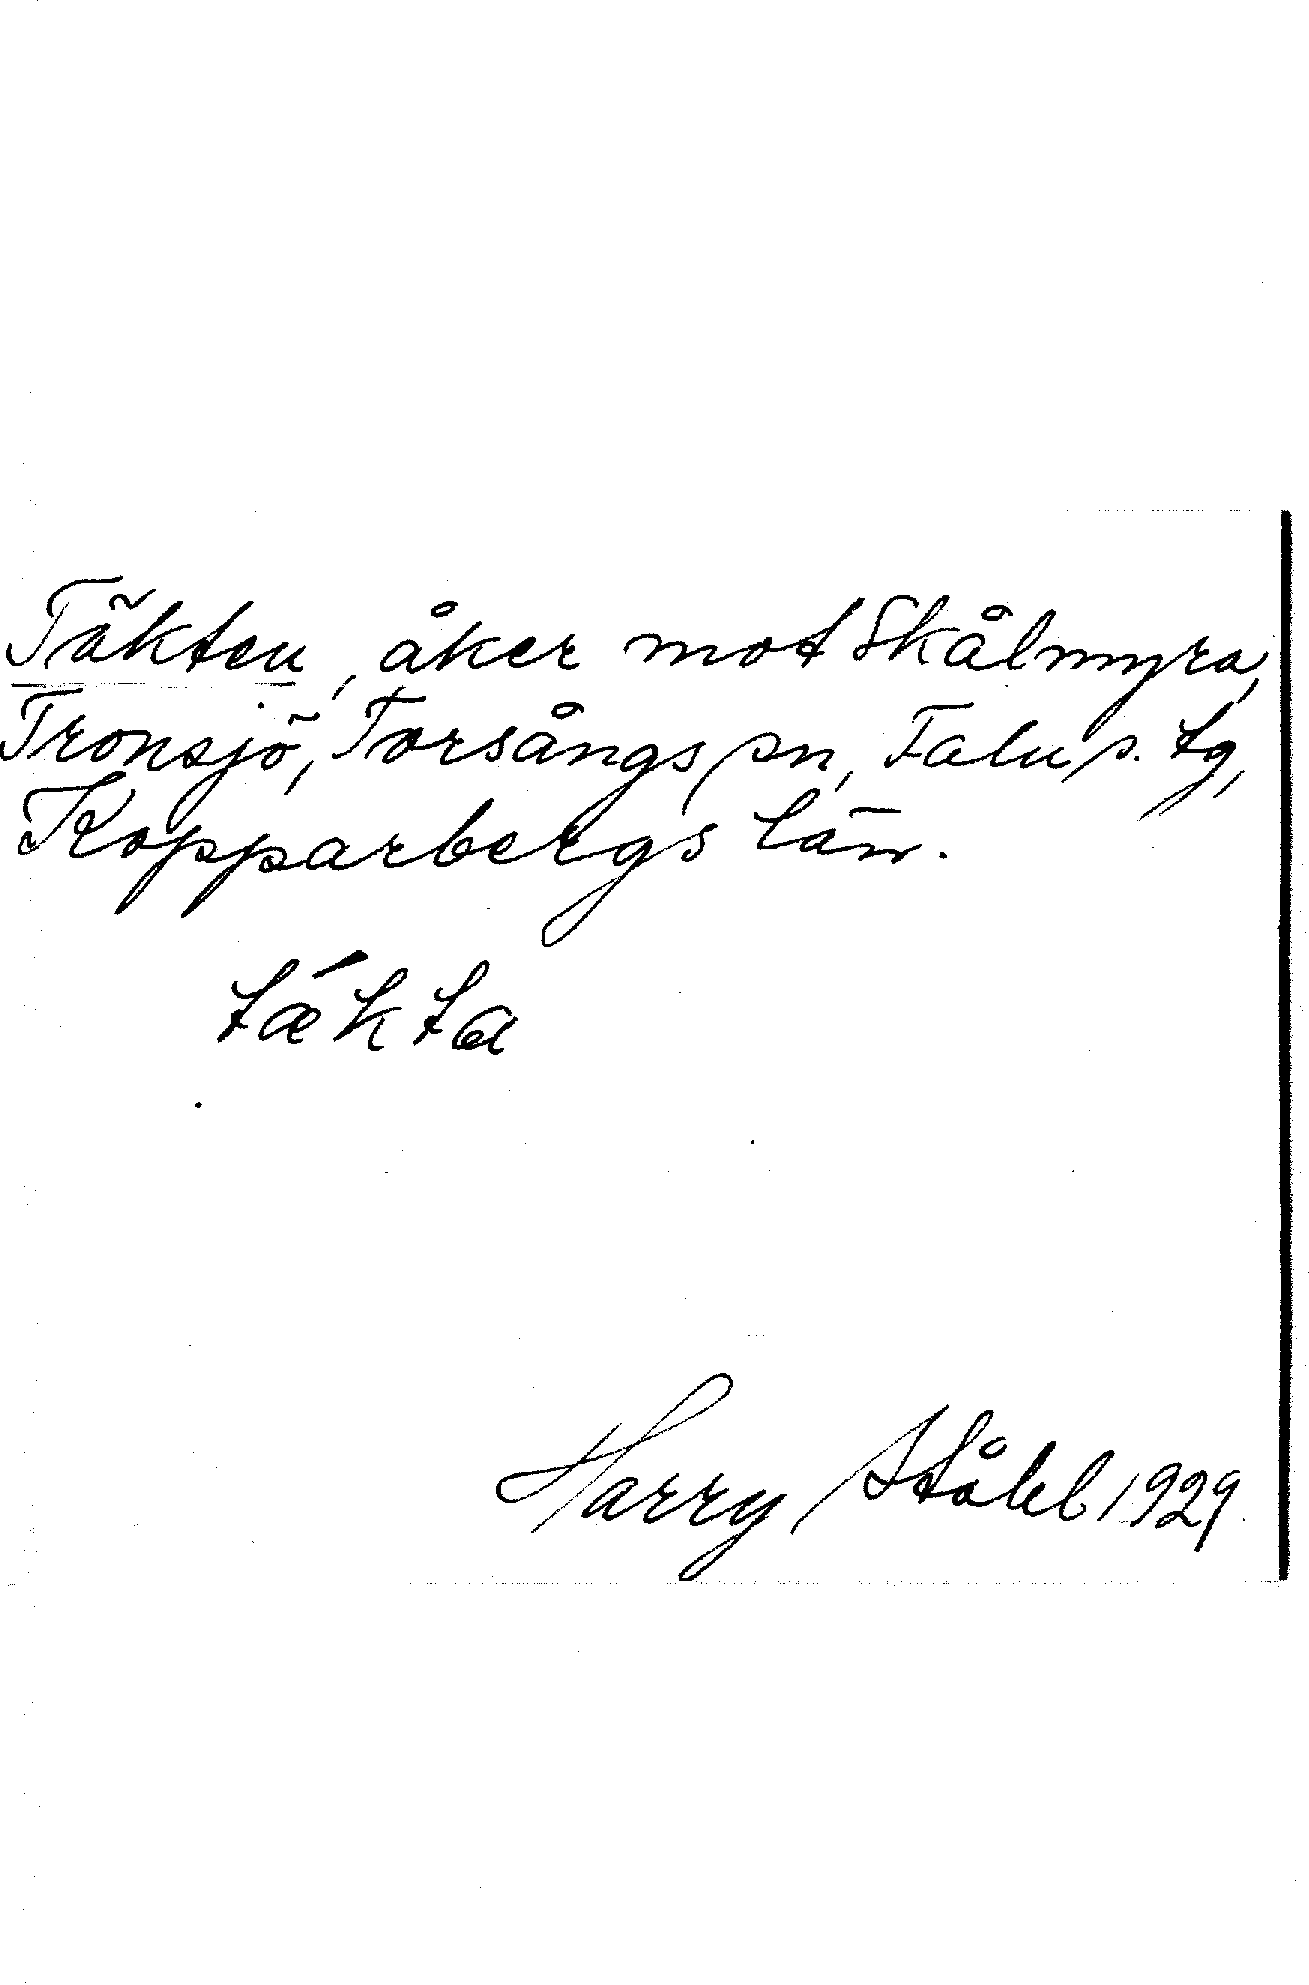 Täkten, åker mot Skålmyra,
Tronsjö, Torsångs sn, Falu s. tg,
Kopparbergs län.
tǽkta
Harry Ståhl 1929